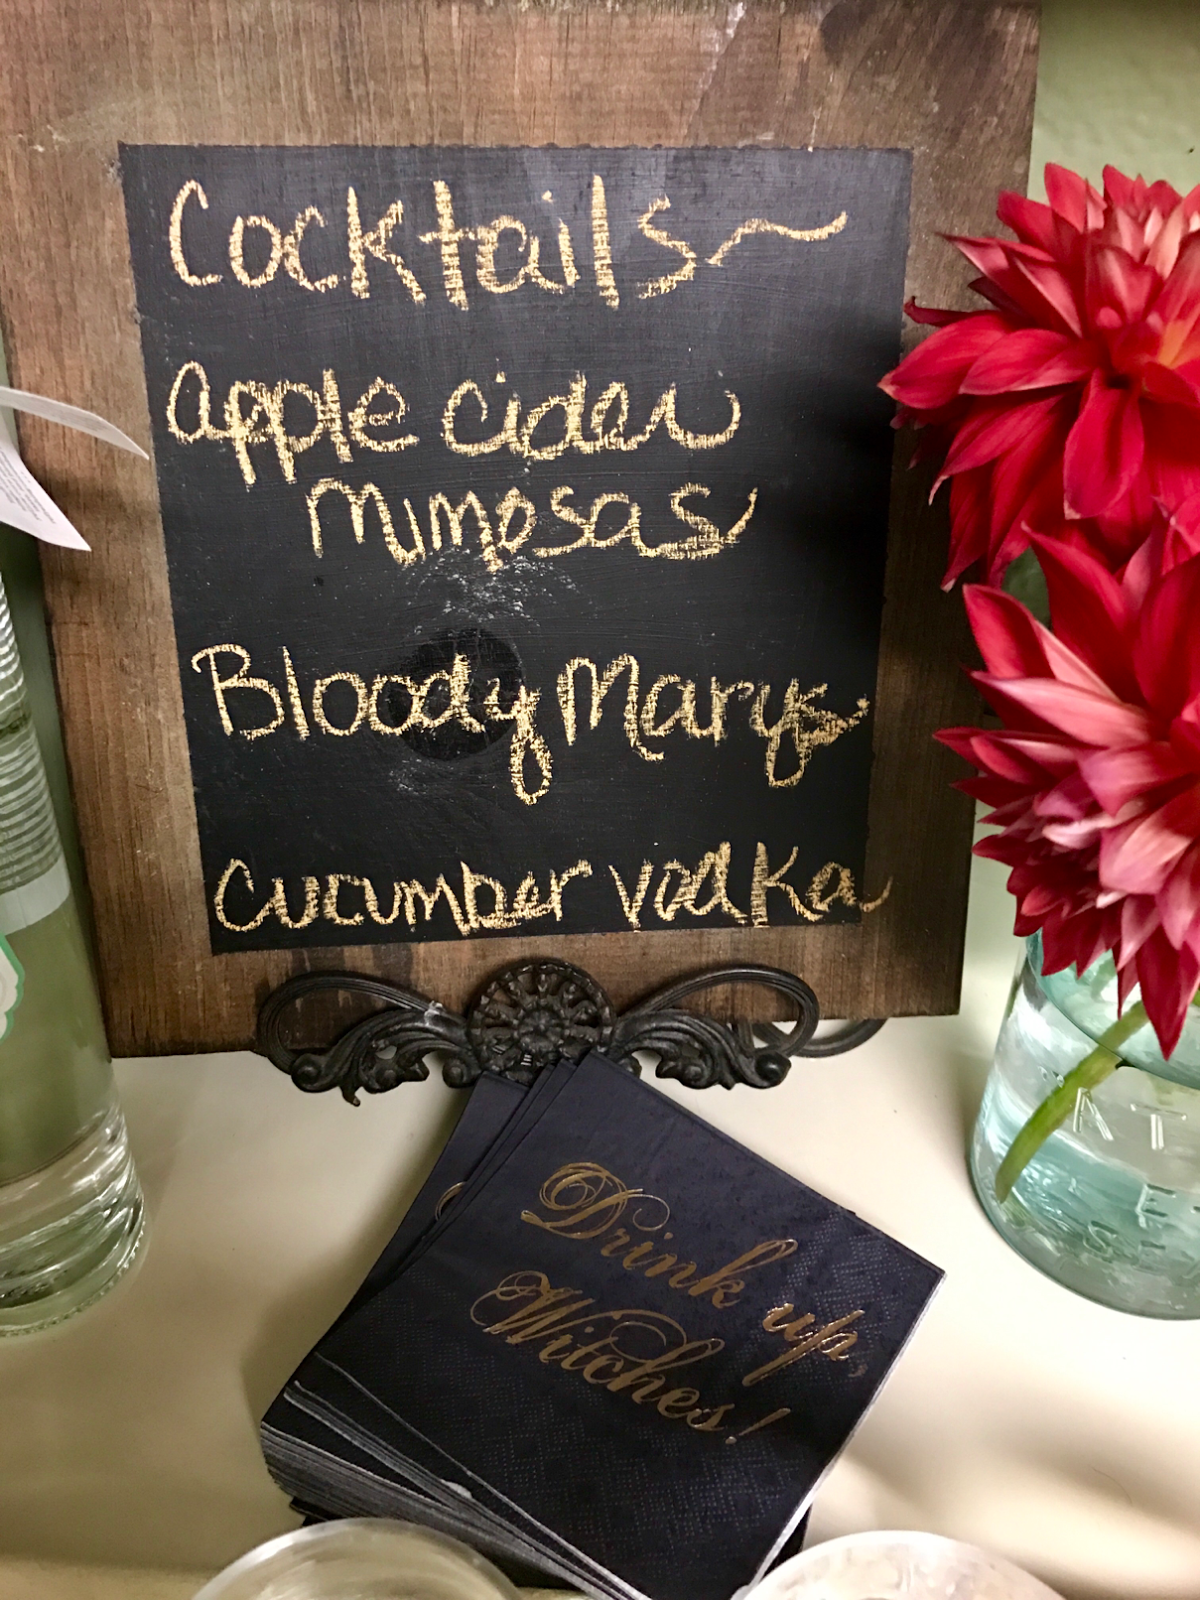 Cocktails~
apple cider
mimosas
Bloody Marys
Cucumber vodka
Drink up,
Witches!